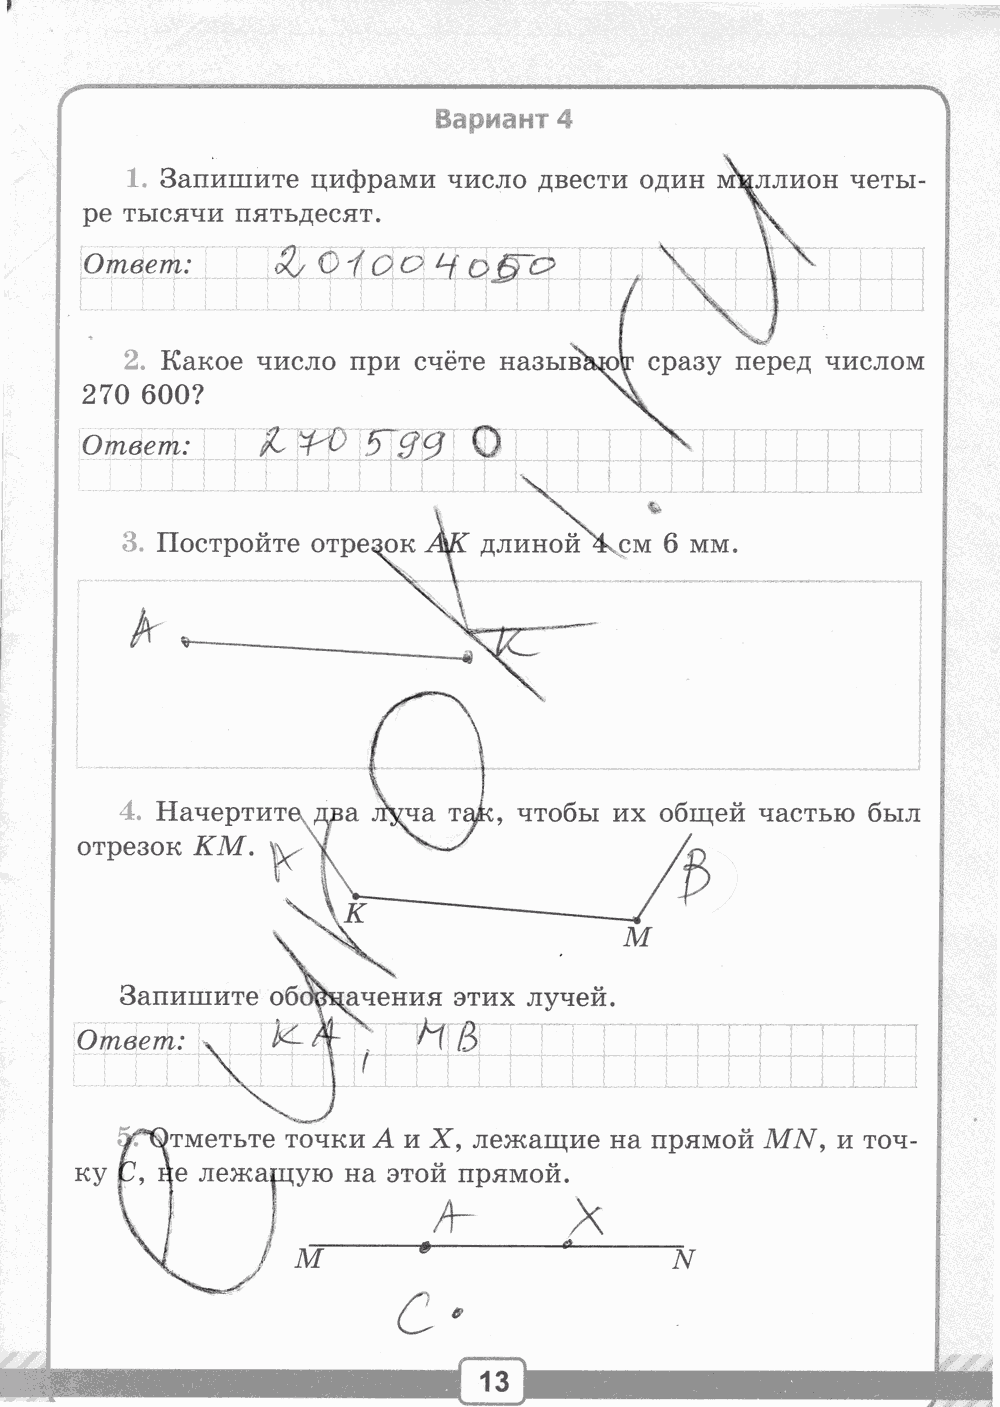 Вариант 4
1. Запишите цифрами число двести один миллион четы-
ре тысячи пятьдесят.
Ответ: 201004050
2. Какое число при счёте называют сразу перед числом
270 600?
Ответ: 270 599 0
3. Постройте отрезок AK длиной 4 см 6 мм.
A K
4. Начертите два луча так, чтобы их общей частью был
отрезок KM.
A B
K M
Запишите обозначения этих лучей.
Ответ: KA, MB
5. Отметьте точки A и X, лежащие на прямой MN, и точ-
ку C, не лежащую на этой прямой.
A X
M N
C
13